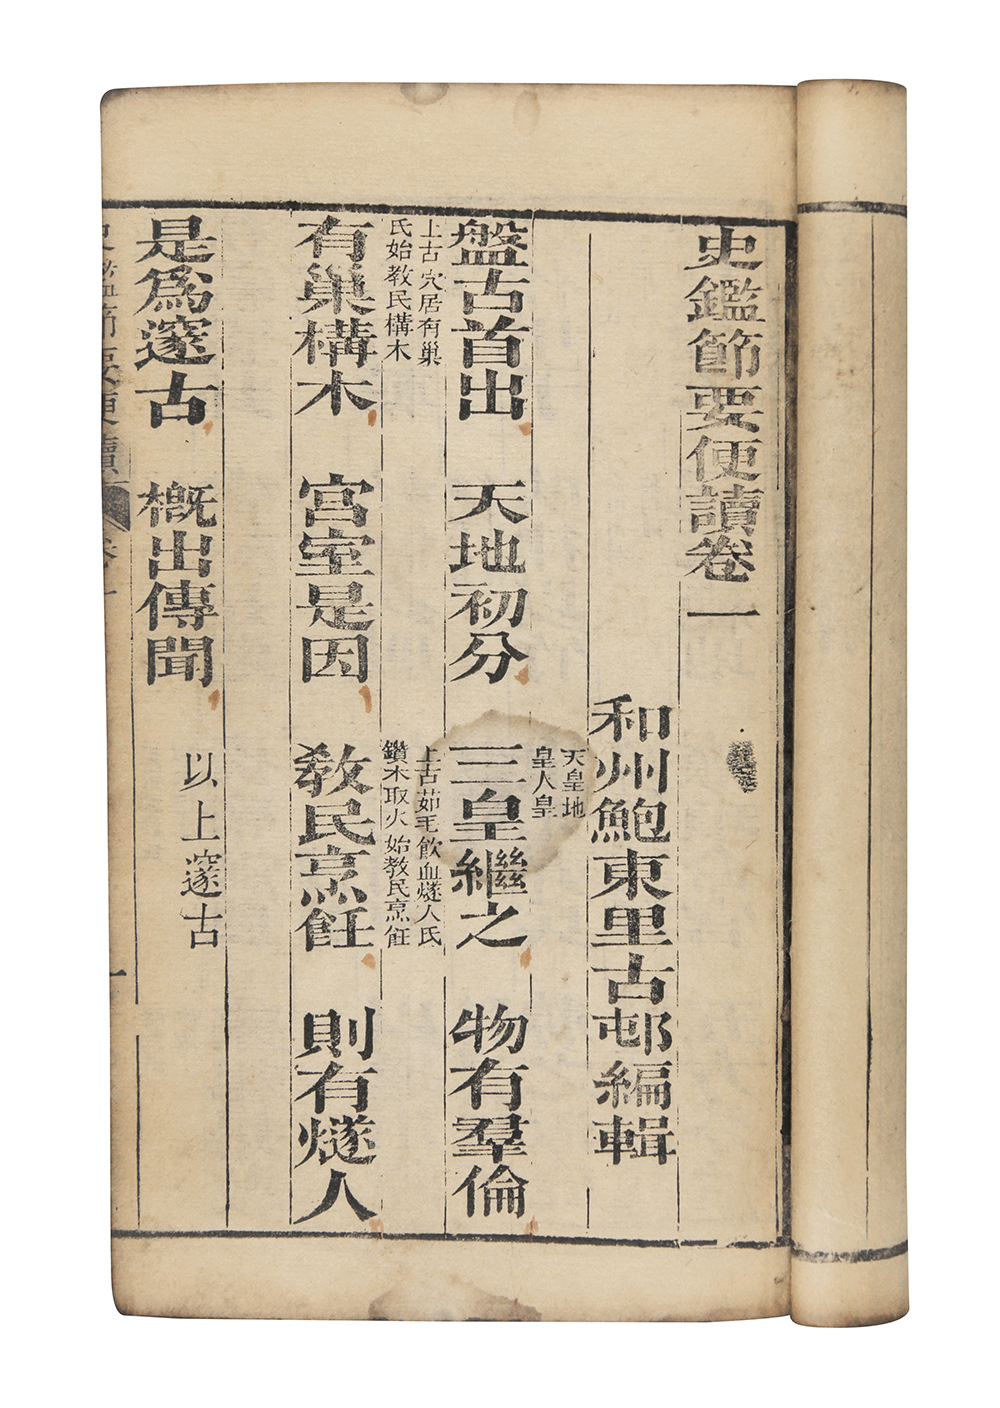 史鑑節要便讀卷一
和州鮑東里古邨編輯
天皇地
皇人皇
盤古首出 天地初分 三皇繼之 物有羣倫
上古穴居有巢
氏始教民構木
上古茹毛飲血燧人氏
鑽木取火始教民烹飪
有巢構木 宮室是因 教民烹飪 則有燧人
是為邃古 概出傳聞 以上邃古
史鑑節要便讀 卷一 一